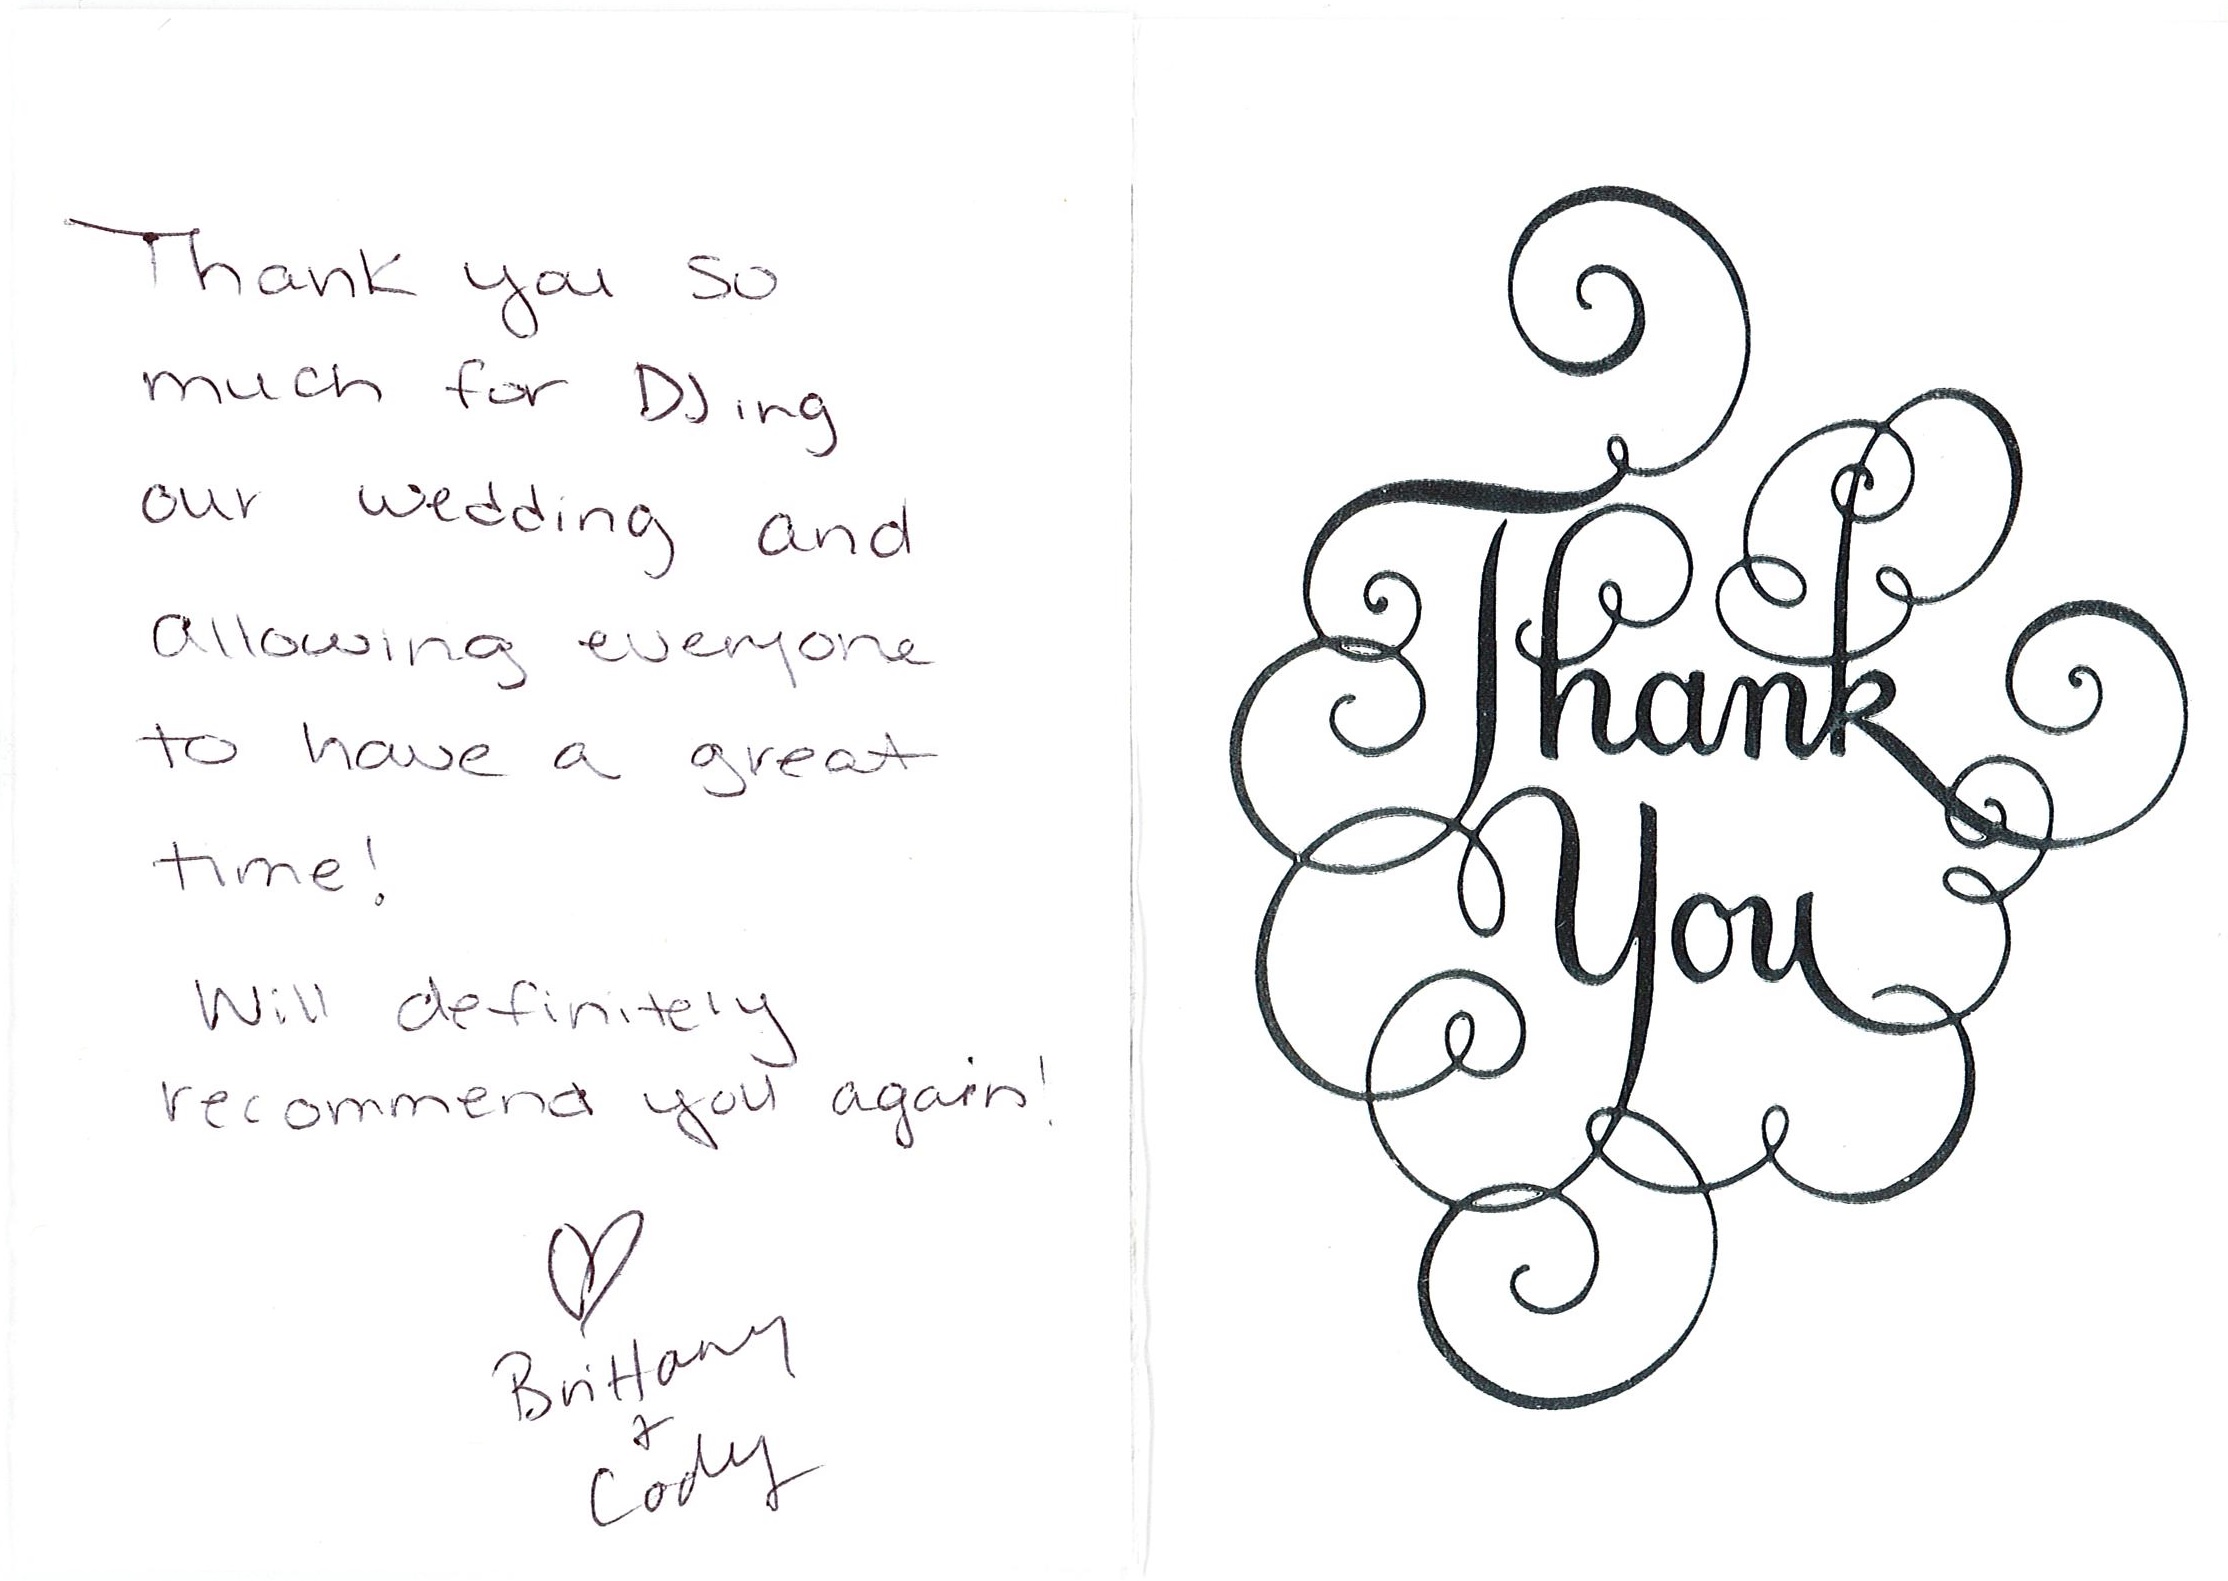 Thank you so
much for DJing
our wedding and
allowing everyone
to have a great
time!
Will definitely
recommend you again!
Brittany
+
Cody
Thank
You